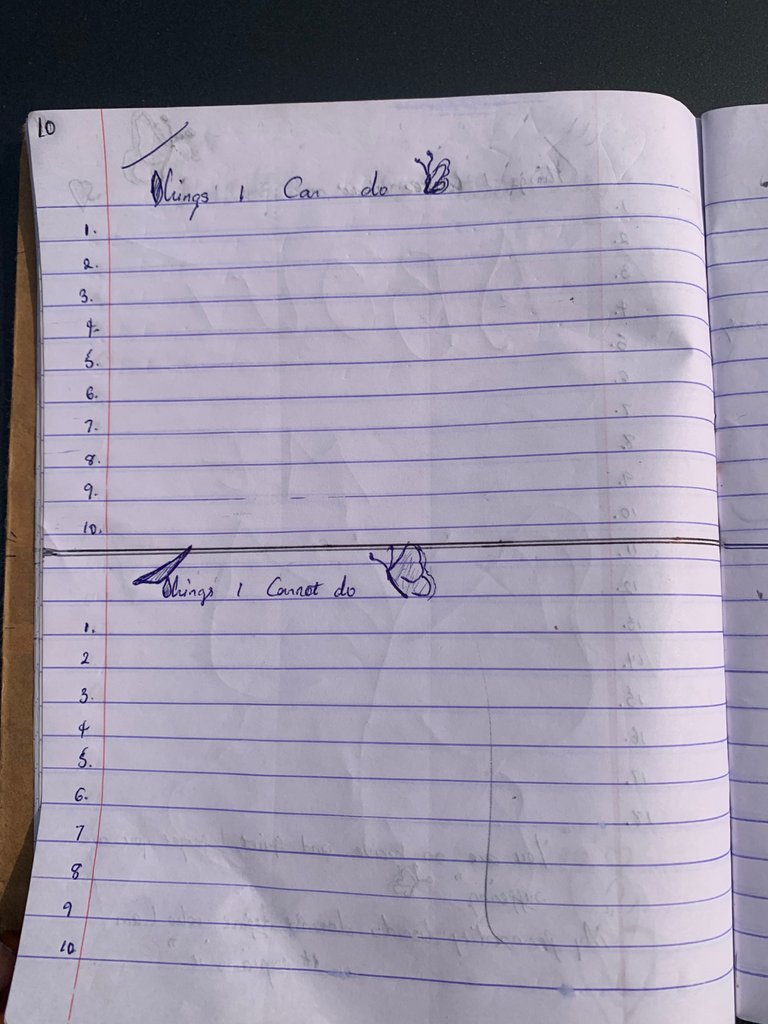 10
Things I Can do
1.
2.
3.
4.
5.
6.
7.
8.
9.
10.
Things I Cannot do
1.
2
3.
4
5.
6.
7
8
9
10